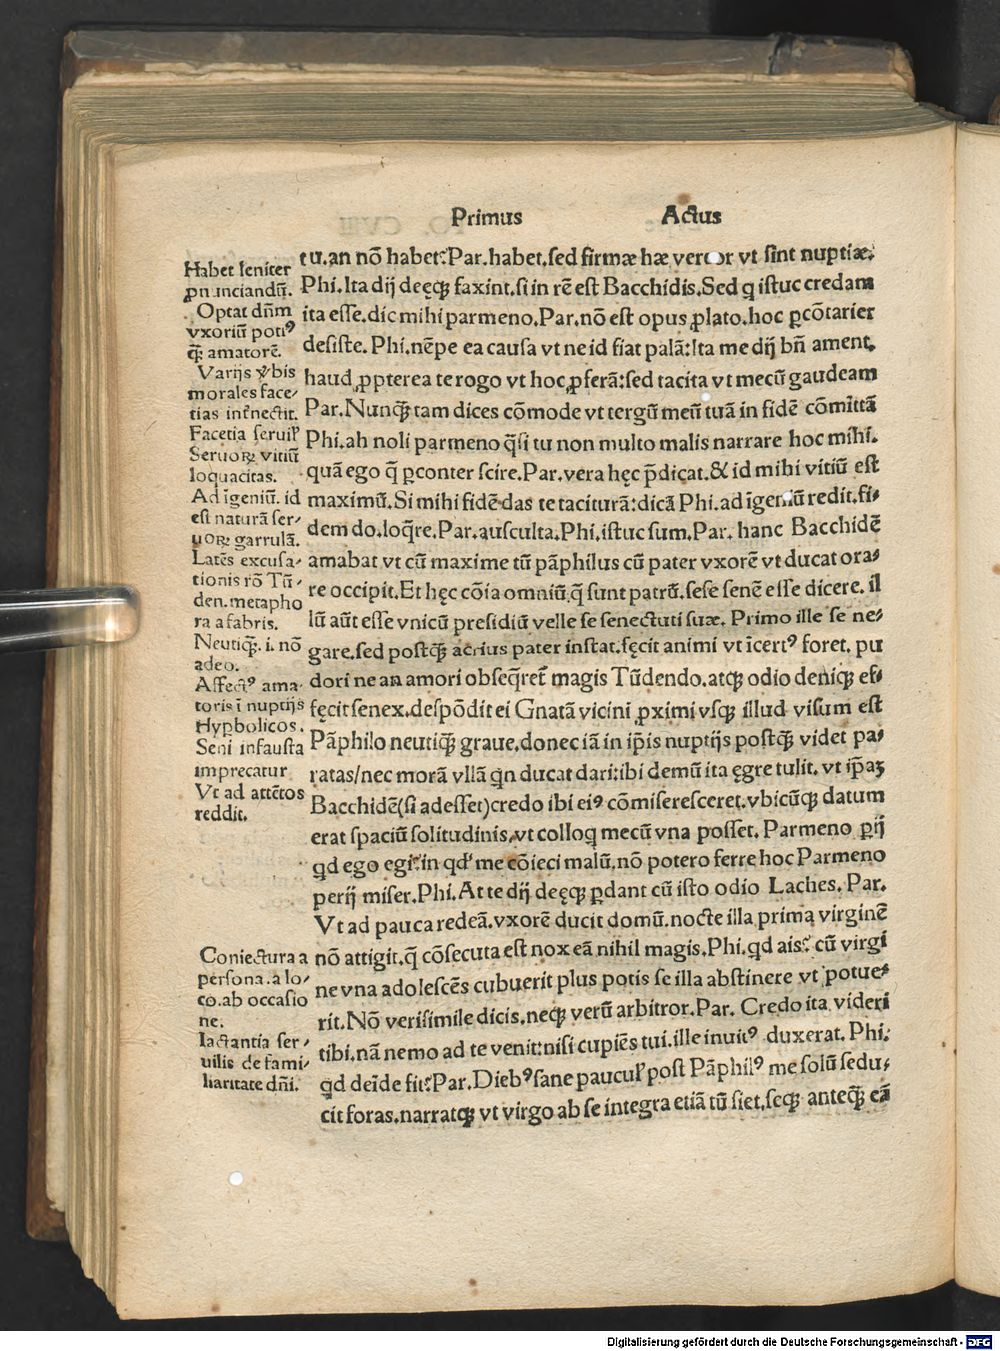 Primus Actus
Habet leniter
ꝓnunciandũ.
Optat dñm
vxoriũ potiꝰ
q̃ȝ amatorẽ.
Varijs v̾bis
morales face⸗
tias infnectit.
Facetia seruil̕
Seruoꝝ vitiũ
loquacitas.
Ad ĩgeniũ. id
est naturã ser⸗
uoꝝ garrulã.
Latẽs excusa⸗
tionis rõ Tũ⸗
den. metapho
ra a fabris.
Neutiq̃ȝ. i. nõ
adeo.
Affectꝰ ama⸗
toris ĩ nuptijs
Hyꝑbolicos.
Seni infausta
imprecatur
Vt ad attẽtos
reddit.
Coniectura a
persona. a lo⸗
co. ab occasio
ne.
Iactantia ser⸗
uilis de fami⸗
liaritate dñi.
tu.an nõ habet?Par.habet.sed firmæ hæ vereor vt sint nuptiæ.
Phi.Ita dij deęqȝ faxint.si in rẽ est Bacchidis.Sed q istuc credam
ita esse.dic mihi parmeno.Par.nõ est opus ꝓlato.hoc ꝑcõtarier
desiste. Phi.nẽpe ea causa vt ne id fiat palã:Ita me dij bñ ament.
haud ꝓpterea te rogo vt hoc ꝓferã:sed tacita vt mecũ gaudeam
Par.Nunq̃ȝ tam dices cõmode vt tergũ meũ tuã in fidẽ cõmittã
Phi.ah noli parmeno q̃si tu non multo malis narrare hoc mihi.
quã ego q̃ ꝑconter scire.Par.vera hęc p̃dicat.& id mihi vitiũ est
maximũ.Si mihi fidẽ das te taciturã:dicã Phi.ad ĩgeniũ redit.fi⸗
dem do.loq̃re.Par.ausculta.Phi.istuc sum.Par. hanc Bacchidẽ
amabat vt cũ maxime tũ pãphilus cũ pater vxorẽ vt ducat ora⸗
re occipit.Et hęc cõia omniũ.q̃ sunt patrũ.sese senẽ esse dicere. il
lũ aũt esse vnicũ presidiũ velle se senectuti suæ. Primo ille se ne⸗
gare.sed postq̃ȝ acrius pater instat.fęcit animi vt ĩcertꝰ foret. pu
dori ne an amori obseq̃ret̃ magis Tũdendo.atqȝ odio deniqȝ ef⸗
fęcit senex.despõdit ei Gnatã vicini ꝓximi vsqȝ illud visum est
Pãphilo neutiq̃ȝ graue.donec iã in ip̃is nuptijs postq̃ȝ videt pa⸗
ratas/nec morã vllã qn ducat dari:ibi demũ ita ęgre tulit. vt ip̃aȝ
Bacchidẽ(si adesset)credo ibi eiꝰ cõmiseresceret.vbicũqȝ datum
erat spaciũ solitudinis.vt colloq mecũ vna posset. Parmeno ꝑij
qd ego egi?in qd̕ me cõieci malũ.nõ potero ferre hoc Parmeno
perij miser.Phi.At te dij deęqȝ ꝑdant cũ isto odio Laches. Par.
Vt ad pauca redeã.vxorẽ ducit domũ.nocte illa prima virginẽ
nõ attigit.q̃ cõsecuta est nox eã nihil magis.Phi.qd ais? cũ virgi
ne vna adolescẽs cubuerit plus potis se illa abstinere vt potue⸗
rit.Nõ verisimile dicis.neqȝ verũ arbitror.Par. Credo ita videri
tibi.nã nemo ad te venit:nisi cupiẽs tui.ille inuitꝰ duxerat. Phi.
qd deĩde fit?Par.Diebꝰ sane paucul̕ post Pãphilꝰ me solũ sedu⸗
cit foras.narratqȝ vt virgo ab se integra etiã tũ siet.seqȝ anteq̃ȝ eã
Digitalisierung gefördert durch die Deutsche Forschungsgemeinschaft - DFG